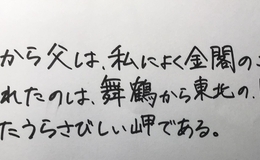 から父は、私によく金閣の
れたのは、舞鶴から東北の、
たうらさびしい岬である。